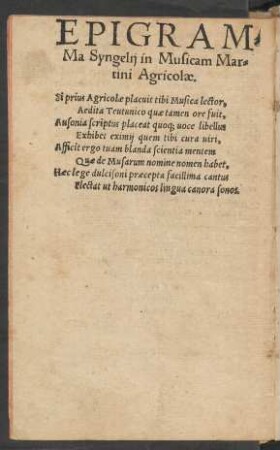 EPIGRAM-
Ma Syngelij in Musicam Mar-
tini Agricolæ.
Si prius Agricolæ placuit tibi Musica lector,
Aedita Teutunico quæ tamen ore fuit,
Ausonia scriptus placeat quoq; uoce libellus
Exhibet eximij quem tibi cura uiri,
Afficit ergo tuam blanda scientia mentem
Quæ de Musarum nomine nomen habet,
Hæc lege dulcisoni præcepta facillima cantus
Flectat ut harmonicos lingua canora sonos.